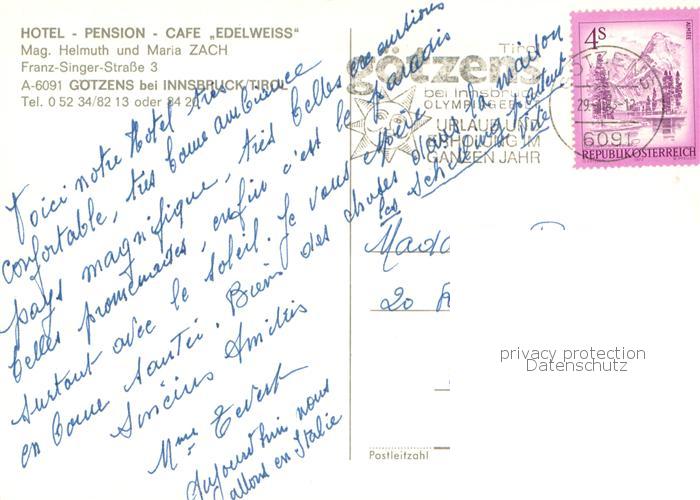 HOTEL - PENSION - CAFE „EDELWEISS“
Mag. Helmuth und Maria ZACH
Franz-Singer-Straße 3
A-6091 GOTZENS bei INNSBRUCK/TIROL
Tel. 0 52 34/82 13 oder 84 20
Tirol
götzens
bei Innsbruck
OLYMPIAREGION
URLAUB UND
ERHOLUNG IM
GANZEN JAHR
6091
4S
ALMSEE
REPUBLIK ÖSTERREICH
Voici notre Hotel très
confortable, très bonne ambiance
pays magnifique, très belles excursions
belles promenades, enfin c'est le paradis
surtout avec le soleil. Je vous espère
en bonne santé. Bien des choses dans la maison
Sincères Amitiés
les Schillings partent
vite
Mme
Aujourd'hui nous
allons en Italie
Mada
20
privacy protection
Datenschutz
Postleitzahl